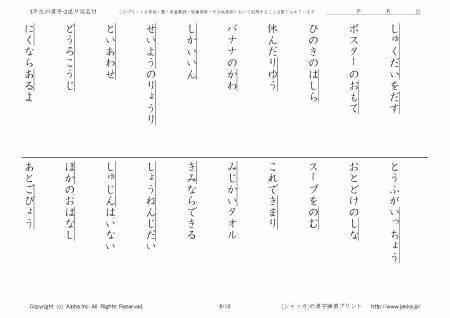 3年生の漢字-2送り仮名付
このプリントを学校・塾・家庭教師・医療機関・その他施設において利用することは禁じられています
年 月 日
しゅくだいをだす
ポスターのおもて
ひのきのはしら
休んだりゆう
バナナのかわ
しかいいん
せいようのりょうり
といあわせ
どうろこうじ
にくならあるよ
とうふがいっちょう
おとどけのしな
スープをのむ
これできまり
みじかいタオル
きみならできる
しょうねんじだい
しゅじんはいない
ほかのおはなし
あとごびょう
Copyright (c) Alpha.Inc All Rights Reserved.
8/10
[ジャッカ]の漢字練習プリント http://www.jakka.jp/